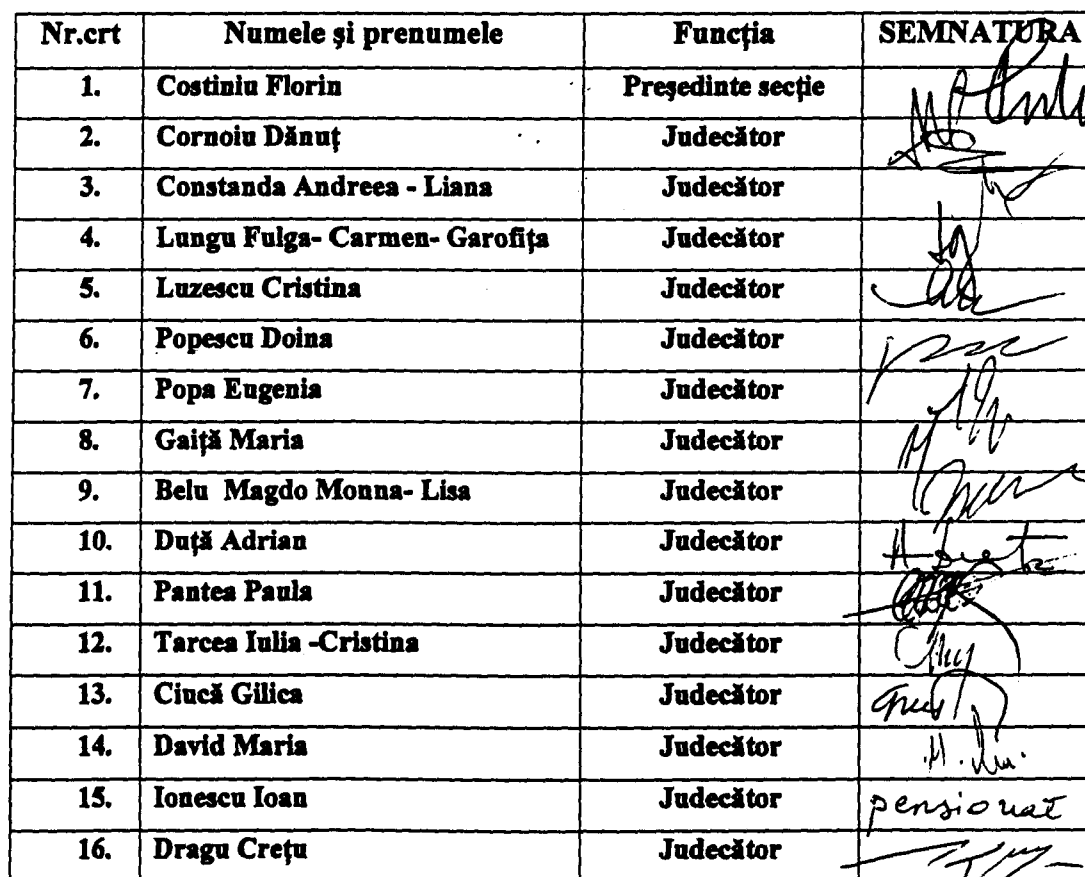 Nr.crt Numele și prenumele Funcția SEMNATURA
1. Costiniu Florin Președinte secție
2. Cornoiu Dănuț Judecător
3. Constanda Andreea - Liana Judecător
4. Lungu Fulga- Carmen- Garofița Judecător
5. Luzescu Cristina Judecător
6. Popescu Doina Judecător
7. Popa Eugenia Judecător
8. Gaiță Maria Judecător
9. Belu Magdo Monna- Lisa Judecător
10. Duță Adrian Judecător
11. Pantea Paula Judecător
12. Tarcea Iulia -Cristina Judecător
13. Ciucă Gilica Judecător
14. David Maria Judecător
15. Ionescu Ioan Judecător pensionat
16. Dragu Crețu Judecător